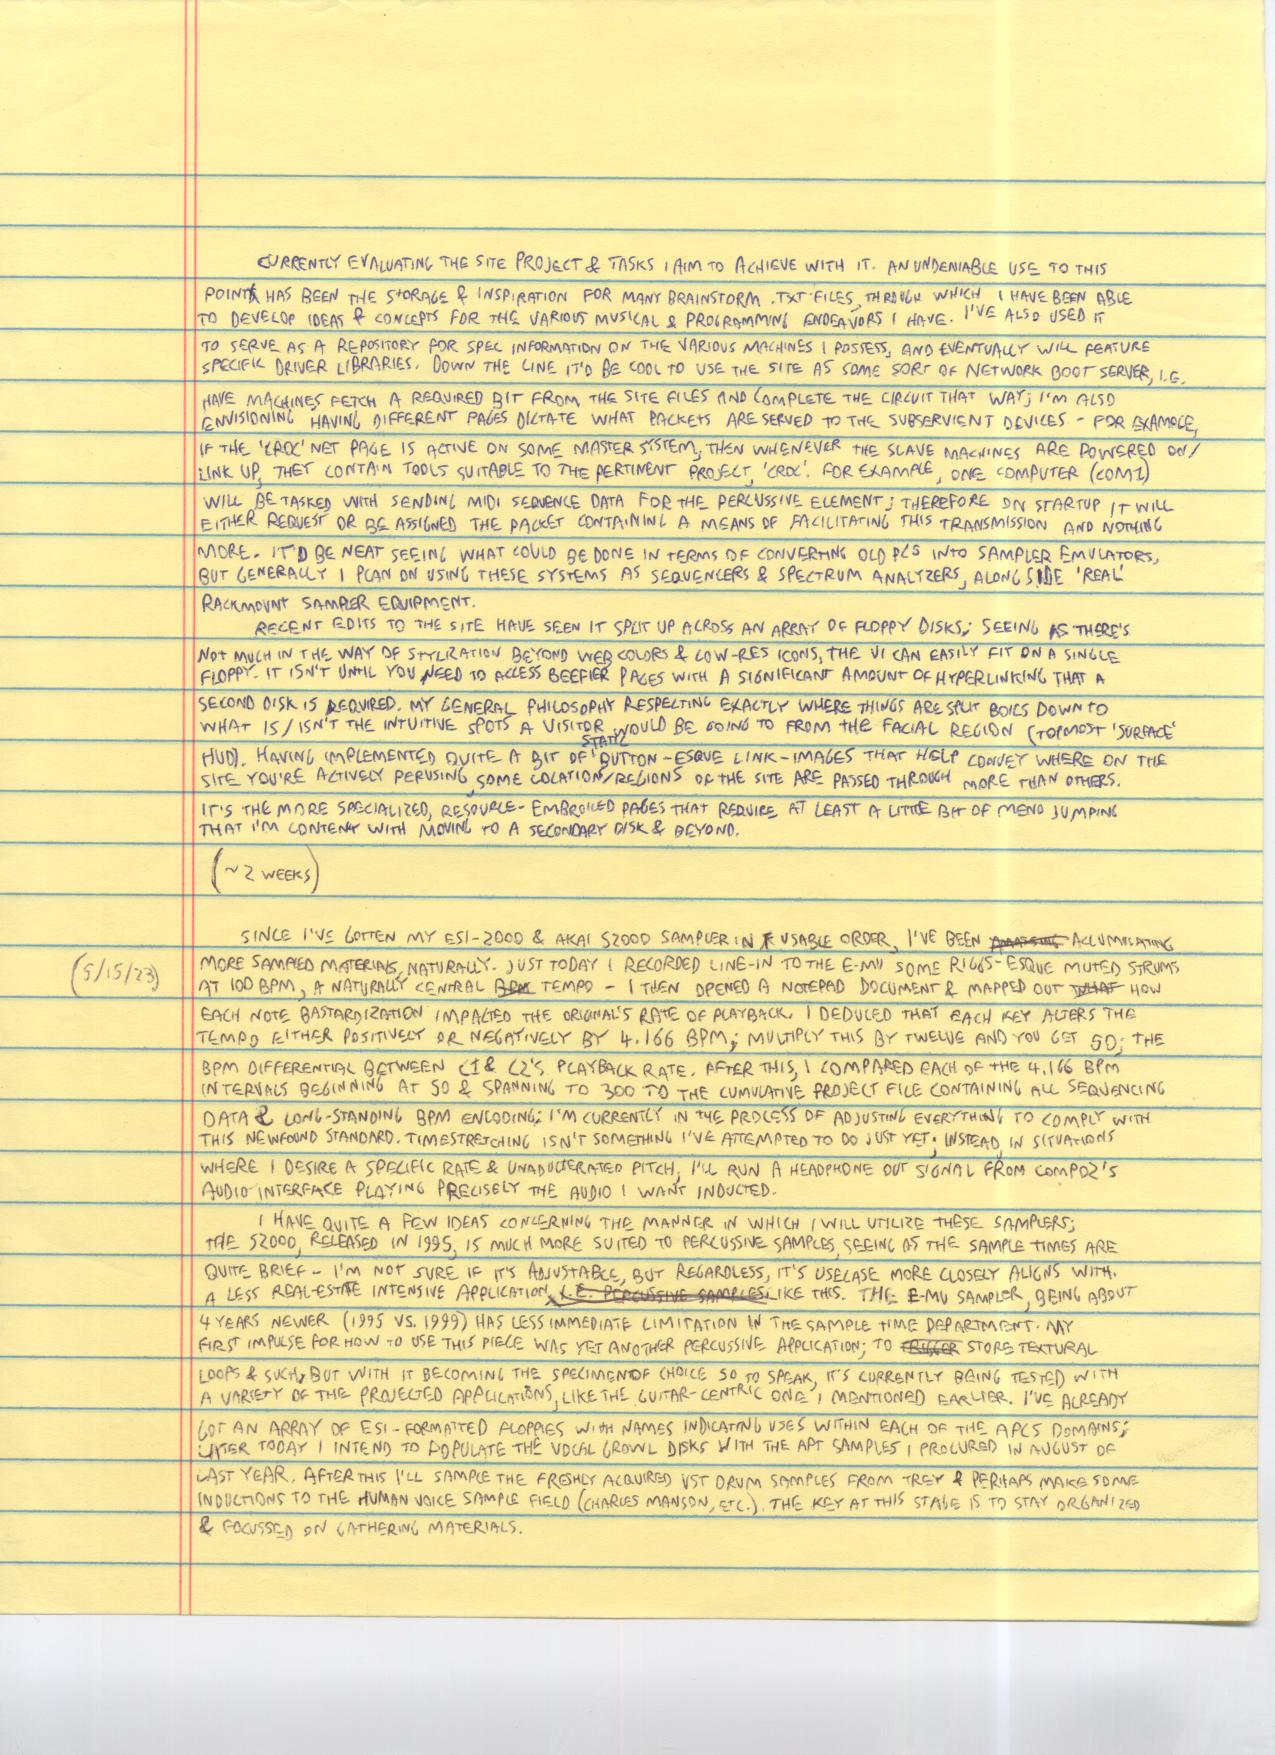 CURRENTLY EVALUATING THE SITE PROJECT & TASKS I AIM TO ACHIEVE WITH IT. AN UNDENIABLE USE TO THIS
POINT HAS BEEN THE STORAGE & INSPIRATION FOR MANY BRAINSTORM .TXT FILES, THROUGH WHICH I HAVE BEEN ABLE
TO DEVELOP IDEAS & CONCEPTS FOR THE VARIOUS MUSICAL & PROGRAMMING ENDEAVORS I HAVE. I'VE ALSO USED IT
TO SERVE AS A REPOSITORY FOR SPEC INFORMATION ON THE VARIOUS MACHINES I POSSESS, AND EVENTUALLY WILL FEATURE
SPECIFIC DRIVER LIBRARIES. DOWN THE LINE IT'D BE COOL TO USE THE SITE AS SOME SORT OF NETWORK BOOT SERVER, I.E.
HAVE MACHINES FETCH A REQUIRED BIT FROM THE SITE FILES AND COMPLETE THE CIRCUIT THAT WAY; I'M ALSO
ENVISIONING HAVING DIFFERENT PAGES DICTATE WHAT PACKETS ARE SERVED TO THE SUBSERVIENT DEVICES - FOR EXAMPLE,
IF THE 'CROC' NET PAGE IS ACTIVE ON SOME MASTER SYSTEM, THEN WHENEVER THE SLAVE MACHINES ARE POWERED ON/
LINK UP, THEY CONTAIN TOOLS SUITABLE TO THE PERTINENT PROJECT, 'CROC'. FOR EXAMPLE, ONE COMPUTER (COM1)
WILL BE TASKED WITH SENDING MIDI SEQUENCE DATA FOR THE PERCUSSIVE ELEMENT; THEREFORE ON STARTUP IT WILL
EITHER REQUEST OR BE ASSIGNED THE PACKET CONTAINING A MEANS OF FACILITATING THIS TRANSMISSION AND NOTHING
MORE. IT'D BE NEAT SEEING WHAT COULD BE DONE IN TERMS OF CONVERTING OLD PCS INTO SAMPLER EMULATORS,
BUT GENERALLY I PLAN ON USING THESE SYSTEMS AS SEQUENCERS & SPECTRUM ANALYZERS, ALONGSIDE 'REAL'
RACKMOUNT SAMPLER EQUIPMENT.
RECENT EDITS TO THE SITE HAVE SEEN IT SPLIT UP ACROSS AN ARRAY OF FLOPPY DISKS; SEEING AS THERE'S
NOT MUCH IN THE WAY OF STYLIZATION BEYOND WEB COLORS & LOW-RES ICONS, THE UI CAN EASILY FIT ON A SINGLE
FLOPPY. IT ISN'T UNTIL YOU NEED TO ACCESS BEEFIER PAGES WITH A SIGNIFICANT AMOUNT OF HYPERLINKING THAT A
SECOND DISK IS REQUIRED. MY GENERAL PHILOSOPHY RESPECTING EXACTLY WHERE THINGS ARE SPLIT BOILS DOWN TO
WHAT IS/ISN'T THE INTUITIVE SPOTS A VISITOR WOULD BE GOING TO FROM THE FACIAL REGION (TOPMOST 'SURFACE'
HUD). HAVING IMPLEMENTED QUITE A BIT OF STATIC BUTTON-ESQUE LINK-IMAGES THAT HELP CONVEY WHERE ON THE
SITE YOU'RE ACTIVELY PERUSING, SOME LOCATION/REGIONS OF THE SITE ARE PASSED THROUGH MORE THAN OTHERS.
IT'S THE MORE SPECIALIZED, RESOURCE-EMBROILED PAGES THAT REQUIRE AT LEAST A LITTLE BIT OF MENU JUMPING
THAT I'M CONTENT WITH MOVING TO A SECONDARY DISK & BEYOND.
(~2 WEEKS)
SINCE I'VE GOTTEN MY ESI-2000 & AKAI S2000 SAMPLER IN USABLE ORDER, I'VE BEEN ACCUMULATING
(5/15/23)
MORE SAMPLED MATERIALS, NATURALLY. JUST TODAY I RECORDED LINE-IN TO THE E-MU SOME RIGGS-ESQUE MUTED STRUMS
AT 100 BPM, A NATURALLY CENTRAL BPM TEMPO - I THEN OPENED A NOTEPAD DOCUMENT & MAPPED OUT WHAT HOW
EACH NOTE BASTARDIZATION IMPACTED THE ORIGINAL'S RATE OF PLAYBACK. I DEDUCED THAT EACH KEY ALTERS THE
TEMPO EITHER POSITIVELY OR NEGATIVELY BY 4.166 BPM; MULTIPLY THIS BY TWELVE AND YOU GET 50; THE
BPM DIFFERENTIAL BETWEEN C1 & C2'S PLAYBACK RATE. AFTER THIS, I COMPARED EACH OF THE 4.166 BPM
INTERVALS BEGINNING AT 50 & SPANNING TO 300 TO THE CUMULATIVE PROJECT FILE CONTAINING ALL SEQUENCING
DATA & LONG-STANDING BPM ENCODING; I'M CURRENTLY IN THE PROCESS OF ADJUSTING EVERYTHING TO COMPLY WITH
THIS NEWFOUND STANDARD. TIMESTRETCHING ISN'T SOMETHING I'VE ATTEMPTED TO DO JUST YET; INSTEAD, IN SITUATIONS
WHERE I DESIRE A SPECIFIC RATE & UNADULTERATED PITCH, I'LL RUN A HEADPHONE OUT SIGNAL FROM COMP02'S
AUDIO INTERFACE PLAYING PRECISELY THE AUDIO I WANT INDUCTED.
I HAVE QUITE A FEW IDEAS CONCERNING THE MANNER IN WHICH I WILL UTILIZE THESE SAMPLERS;
THE S2000, RELEASED IN 1995, IS MUCH MORE SUITED TO PERCUSSIVE SAMPLES, SEEING AS THE SAMPLE TIMES ARE
QUITE BRIEF - I'M NOT SURE IF IT'S ADJUSTABLE, BUT REGARDLESS, IT'S USECASE MORE CLOSELY ALIGNS WITH.
A LESS REAL-ESTATE INTENSIVE APPLICATION, I.E. PERCUSSIVE SAMPLES. LIKE THIS. THE E-MU SAMPLER, BEING ABOUT
4 YEARS NEWER (1995 VS. 1999) HAS LESS IMMEDIATE LIMITATION IN THE SAMPLE TIME DEPARTMENT. MY
FIRST IMPULSE FOR HOW TO USE THIS PIECE WAS YET ANOTHER PERCUSSIVE APPLICATION; TO TRIGGER STORE TEXTURAL
LOOPS & SUCH, BUT WITH IT BECOMING THE SPECIMEN OF CHOICE SO TO SPEAK, IT'S CURRENTLY BEING TESTED WITH
A VARIETY OF THE PROJECTED APPLICATIONS, LIKE THE GUITAR-CENTRIC ONE I MENTIONED EARLIER. I'VE ALREADY
GOT AN ARRAY OF ESI-FORMATTED FLOPPIES WITH NAMES INDICATING USES WITHIN EACH OF THE APCS DOMAINS;
LATER TODAY I INTEND TO POPULATE THE VOCAL GROWL DISKS WITH THE APT SAMPLES I PROCURED IN AUGUST OF
LAST YEAR. AFTER THIS I'LL SAMPLE THE FRESHLY ACQUIRED VST DRUM SAMPLES FROM TREY & PERHAPS MAKE SOME
INDUCTIONS TO THE HUMAN VOICE SAMPLE FIELD (CHARLES MANSON, ETC.). THE KEY AT THIS STAGE IS TO STAY ORGANIZED
& FOCUSSED ON GATHERING MATERIALS.